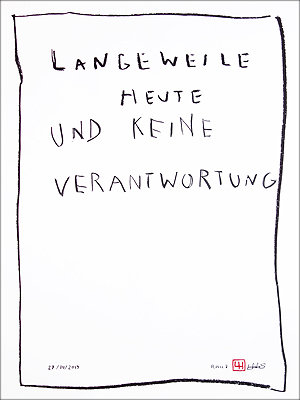 LANGEWEILE
HEUTE
UND KEINE
VERANTWORTUNG